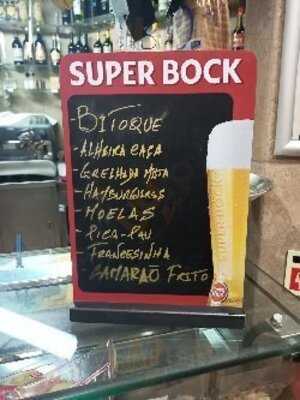 SUPER BOCK
- BITOQUE
- ALHEIRA CAÇA
- GRELHADA MISTA
- HAMBURGUESS
- MOELAS
- PICA-PAU
- FRANCESINHA
- CAMARÃO FRITO
SUPER BOCK